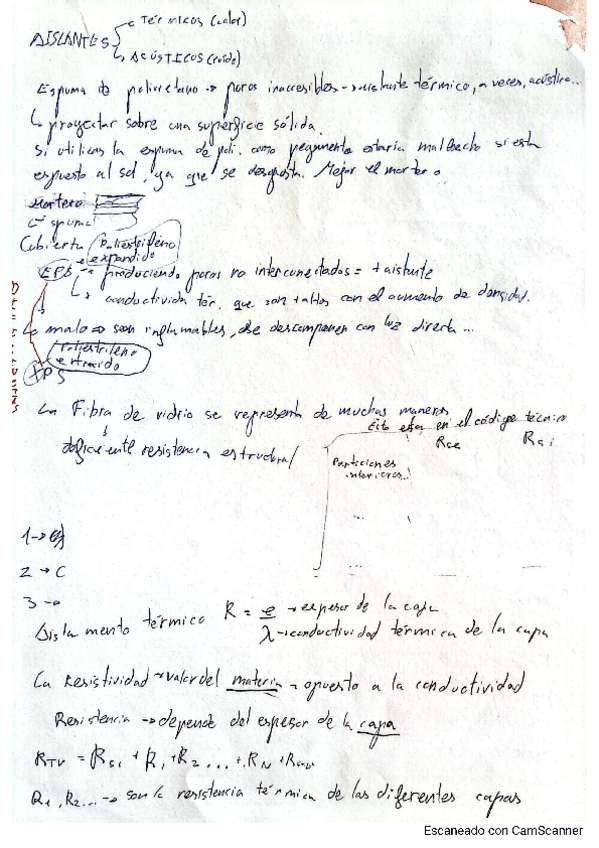 AISLANTES
→ Térmicos (calor)
↳ Acústicos (ruido)
Espuma de poliuretano → poros inaccesibles → aislante térmico, a veces, acústico...
↳ proyectar sobre una superficie sólida.
Si utilizas la espuma de poli. como pegamento estaría malhecho si esta
expuesto al sol, ya que se desgasta. Mejor el mortero
mortero
espuma
Cubierta
Poliestireno
expandido
EPS → produciendo poros no interconectados = + aislante
↳ conductivida tér. que son + altos con el aumento de densidad.
Lo malo → son inflamables, se descomponen con luz directa ...
Poliestireno
extruido
XPS
La Fibra de vidrio se representa de muchas maneras
Esto esta en el código técnico
deficiente resistencia estructural
Rse Rsi
Particiones
interiores
...
1 →
2 → C
3 →
Aislamento térmico R = e/λ
e → espesor de la capa
λ → conductividad térmica de la capa
La Resistividad → valor del materia → opuesto a la conductividad
Resistencia → depende del espesor de la capa
RTU = Rsi + R1 + R2 ... + RN +
R1, R2 ... → son la resistencia térmica de las diferentes capas
Escaneado con CamScanner